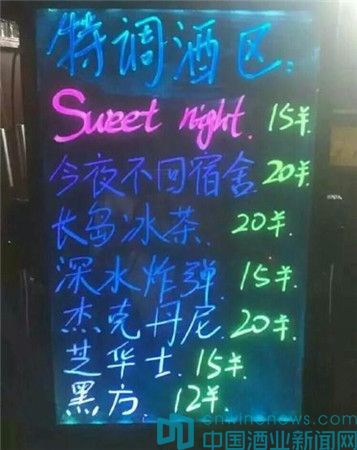 特调酒区：
Sweet night. 15羊.
今夜不回宿舍 20羊.
长岛冰茶. 20羊.
深水炸弹. 15羊.
杰克丹尼. 20羊.
芝华士. 15羊.
黑方. 12羊.
cnwinenews.com
中国酒业新闻网